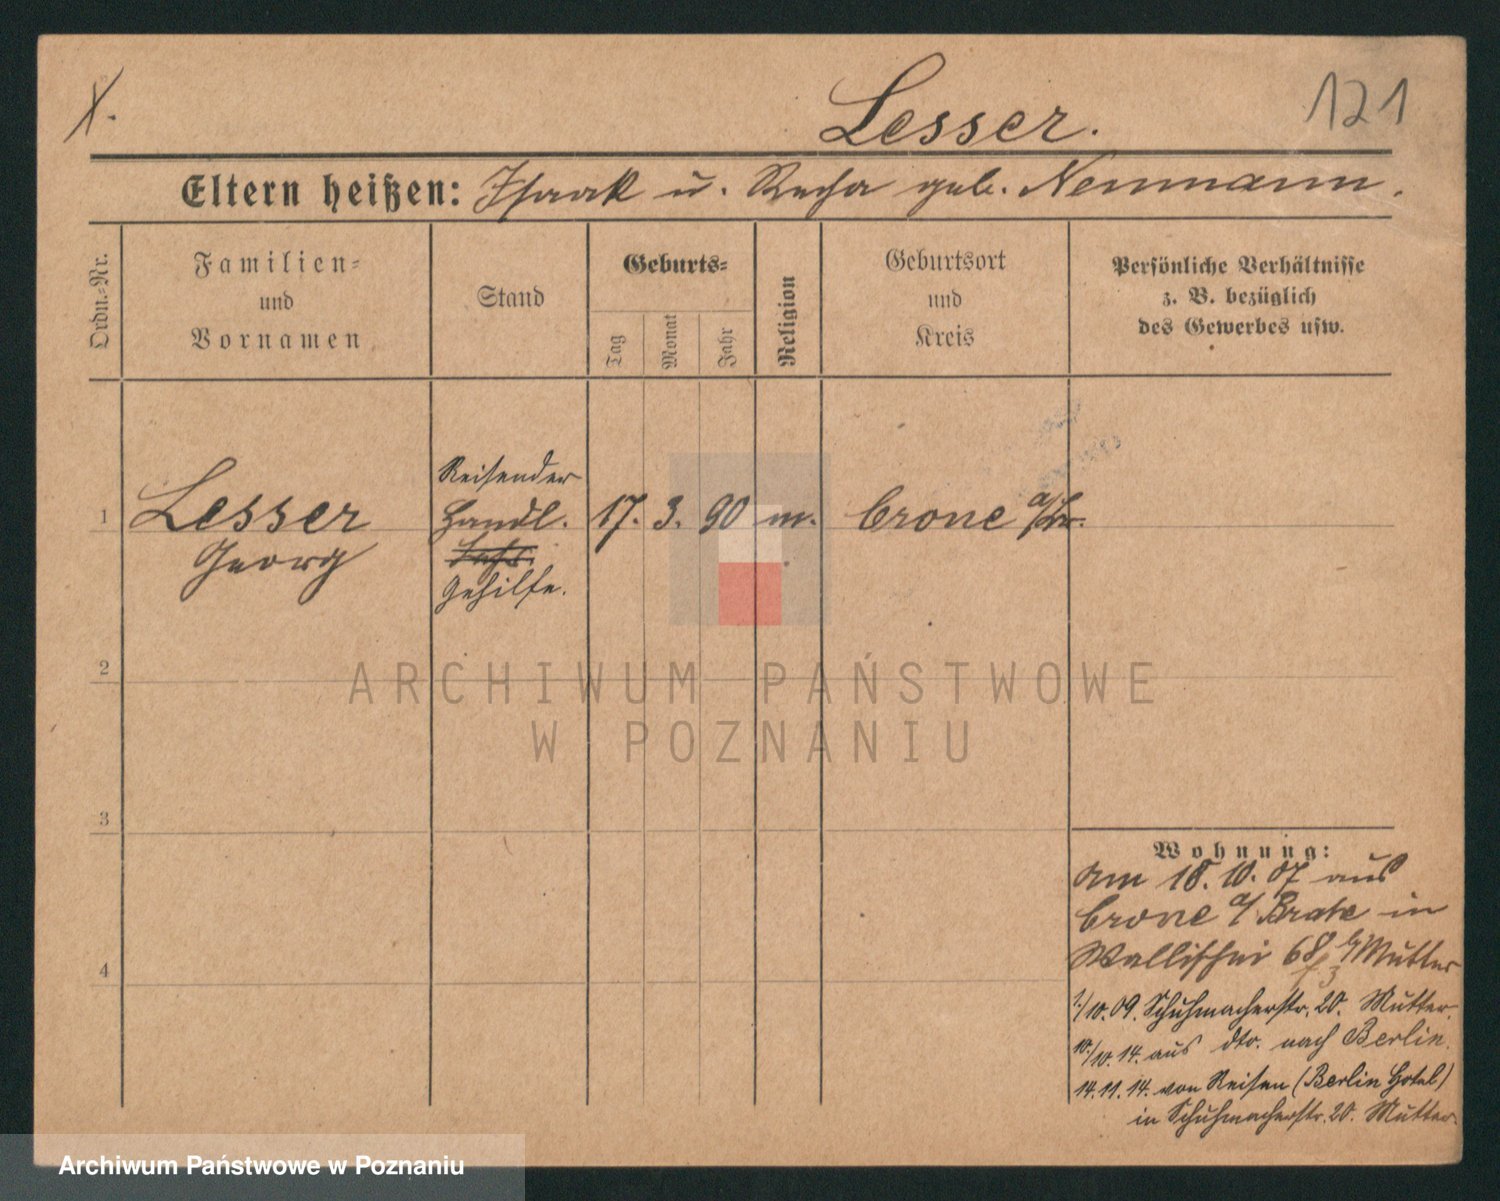 X.
Lesser.
121
Eltern heißen: Isaak u. Recha geb. Neumann.
Ordn.-Nr.
Familien-
und
Vornamen
Stand
Geburts-
Tag
Monat
Jahr
Religion
Geburtsort
und
Kreis
Persönliche Verhältnisse
z. B. bezüglich
des Gewerbes usw.
1
Lesser
Georg
Reisender
Handl.
Gehilfe.
17. 3. 90
m.
Crone a/Br.
2
3
4
Wohnung:
Am 18. 10. 07 aus
Crone a/Brahe in
Wallischei 68 b/Mutter
1./10. 09. Schuhmacherstr. 20. Mutter.
10./10. 14. aus dto. nach Berlin.
14. 11. 14. von Reisen (Berlin Hotel)
in Schuhmacherstr. 20. Mutter.
ARCHIWUM PAŃSTWOWE
W POZNANIU
Archiwum Państwowe w Poznaniu